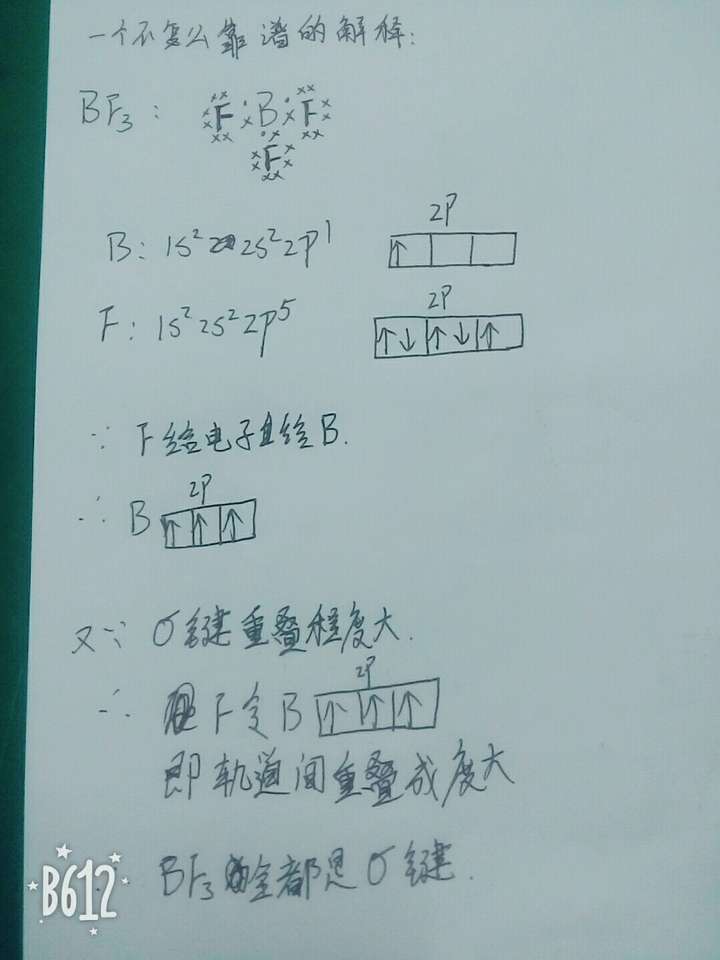 一个不怎么靠谱的解释:
BF₃: F B F
F
2P
B: 1S² 2S² 2P¹ ↑
2P
F: 1S² 2S² 2P⁵ ↑↓ ↑↓ ↑
∵ F给电子给B.
2P
∴ B ↑ ↑ ↑
又∵ σ键重叠程度大.
2P
∴ F令B ↑ ↑ ↑
即轨道间重叠成度大
BF₃全都是σ键.
B612